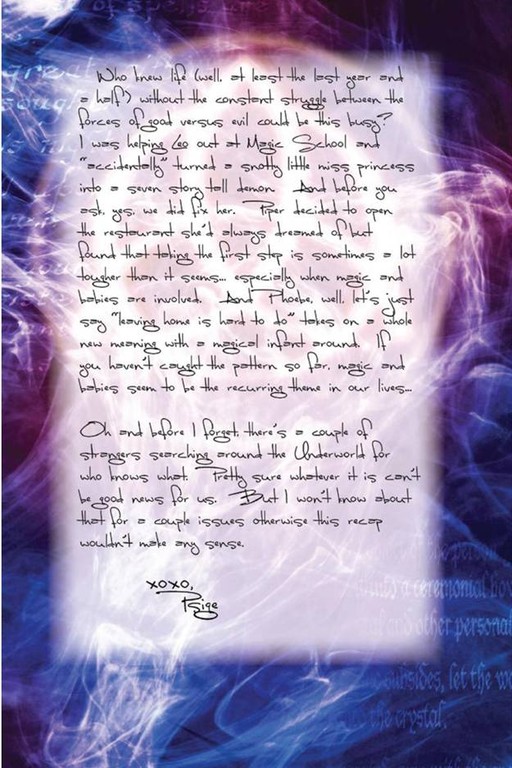 Who knew life (well, at least the last year and
a half?) without the constant struggle between the
forces of good versus evil could be this busy?
I was helping Leo out at Magic School and
"accidentally" turned a snotty little miss princess
into a seven story tall demon. And before you
ask, yes, we did fix her. Piper decided to open
the restaurant she'd always dreamed of but
found that taking the first step is sometimes a lot
tougher than it seems... especially when magic and
babies are involved. And Phoebe, well, let's just
say "leaving home is hard to do" takes on a whole
new meaning with a magical infant around. If
you haven't caught the pattern so far, magic and
babies seem to be the recurring theme in our lives...
Oh and before I forget, there's a couple of
strangers searching around the Underworld for
who knows what. Pretty sure whatever it is can't
be good news for us. But I won't know about
that for a couple issues otherwise this recap
wouldn't make any sense.
xoxo,
Paige
of the person
into a ceremonial
and other personal
subsides, let the
the crystal.